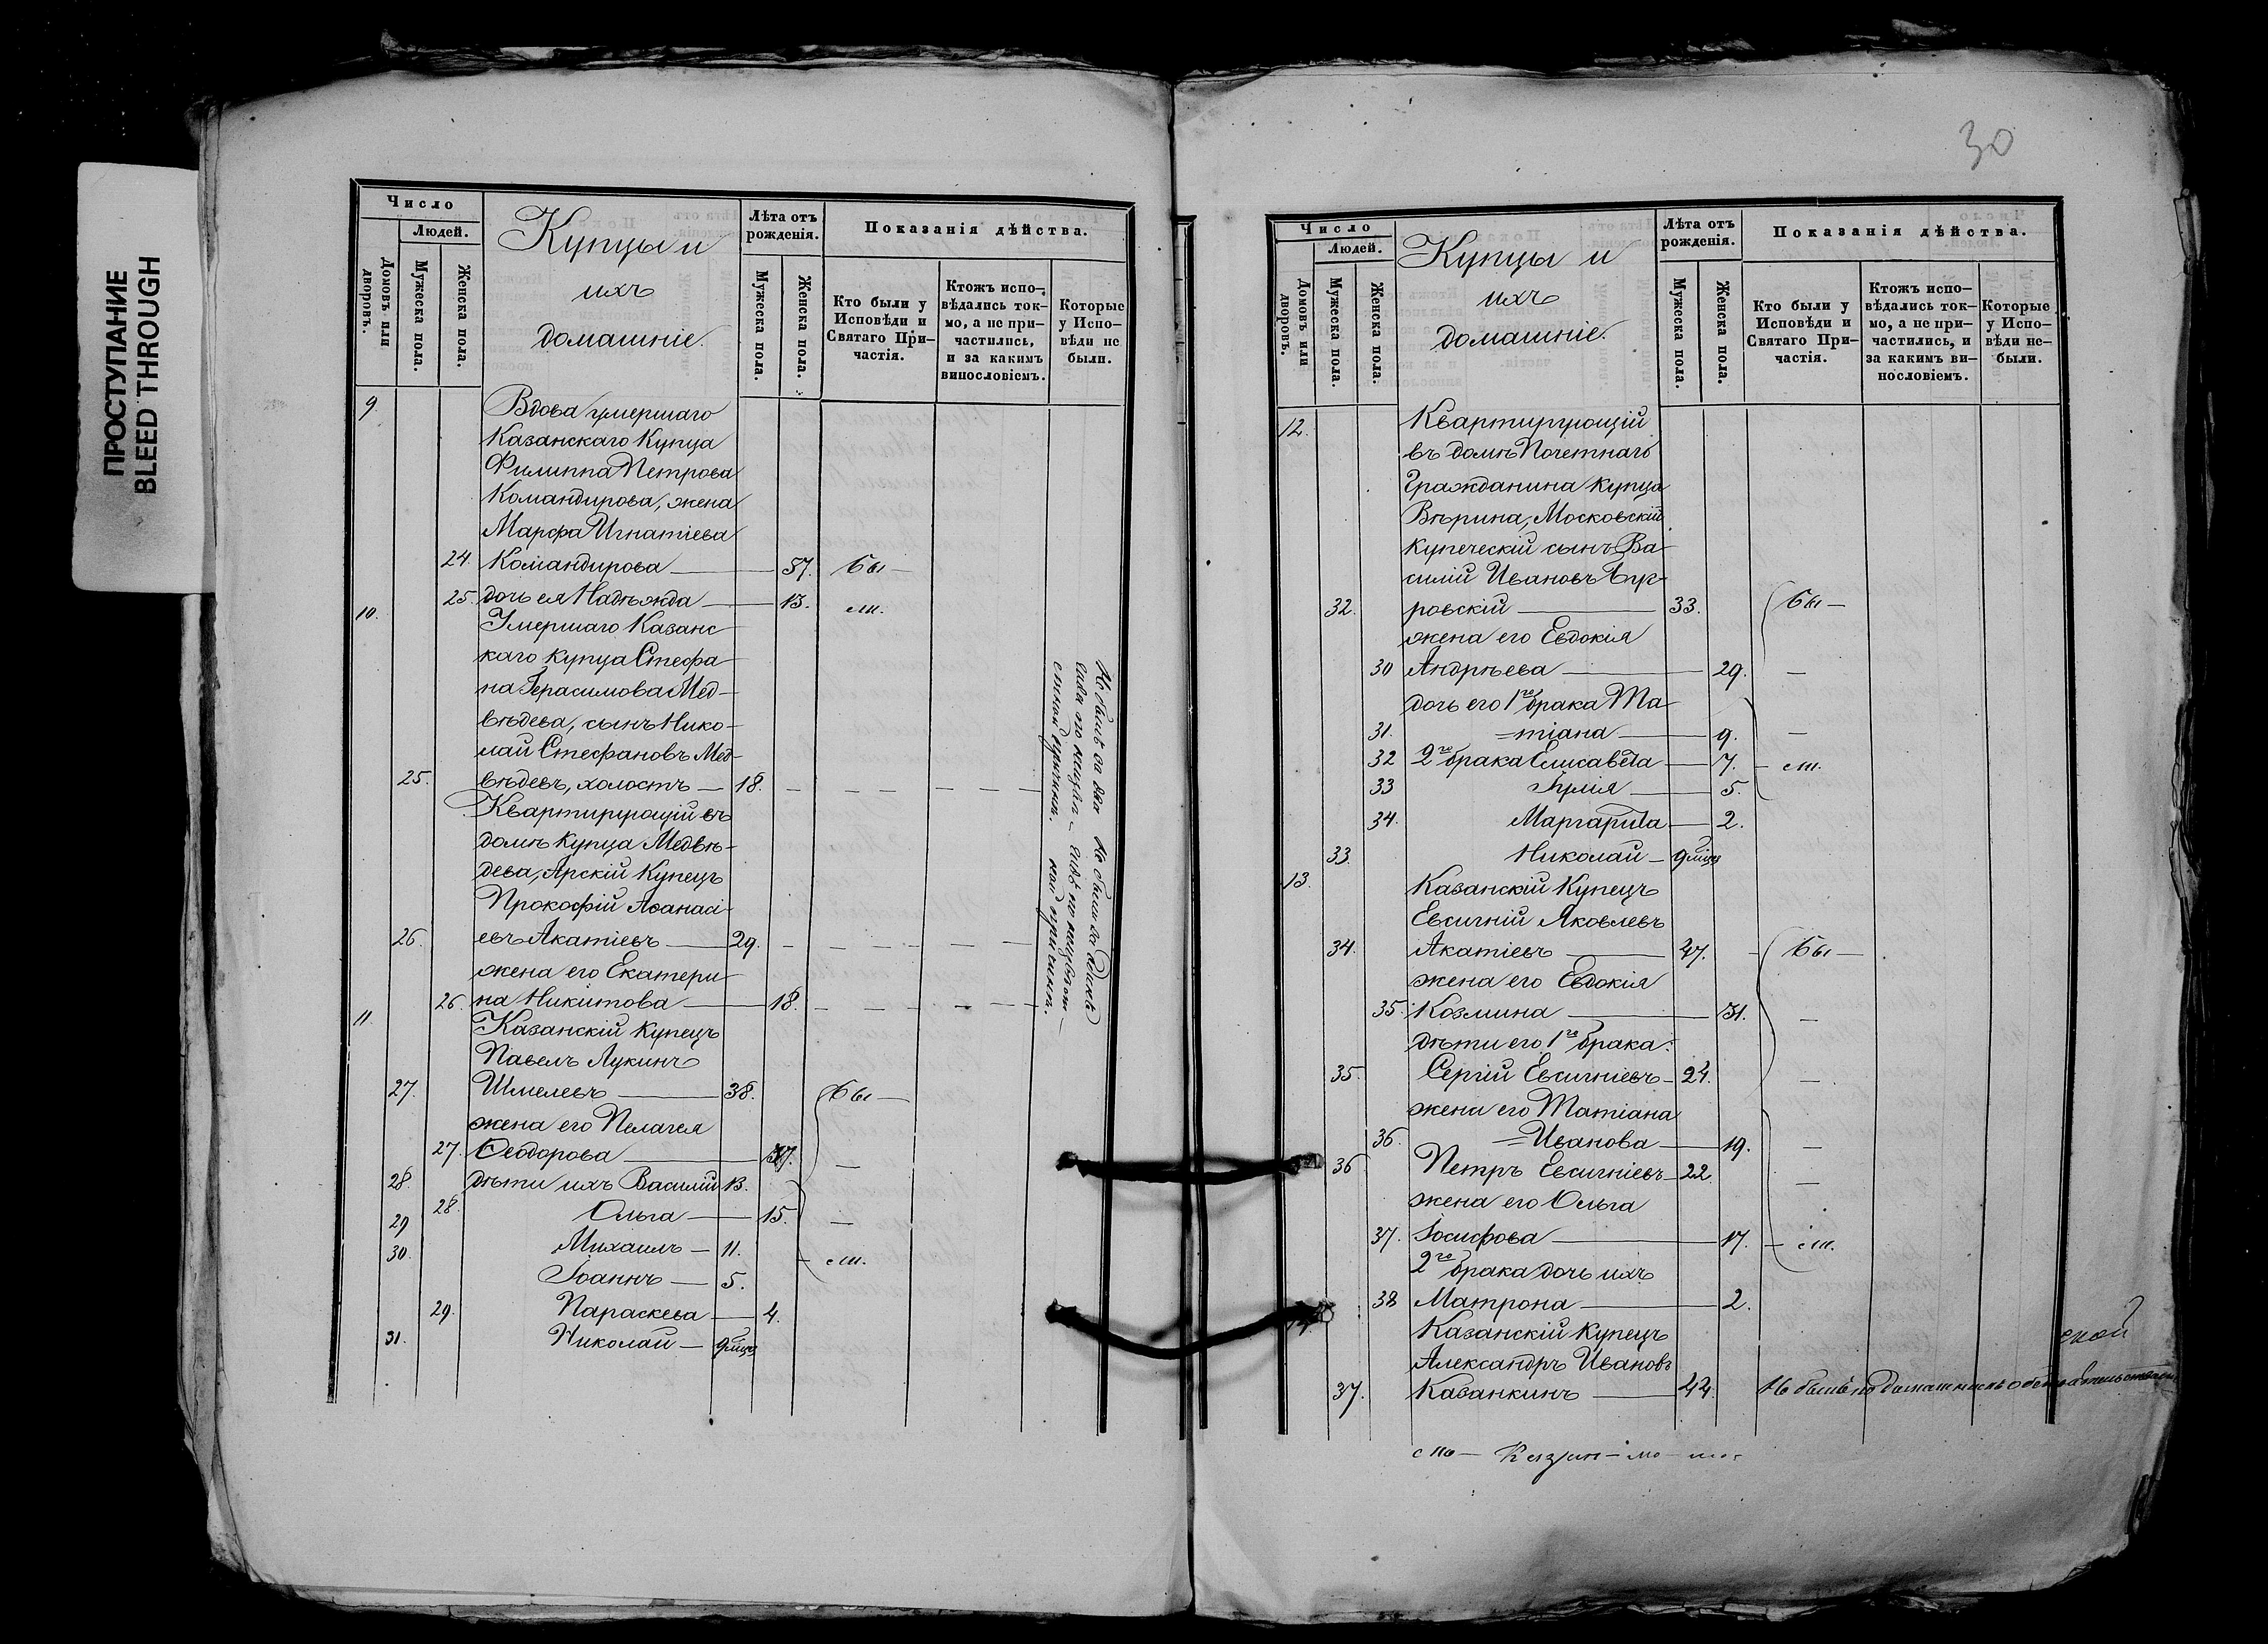 ПРОСТУПАНИЕ
BLEED THROUGH
Число
Людей.
Домовъ или дворовъ.
Мужеска пола.
Женска пола.
Купцы и
ихъ
домашніе.
Лѣта отъ
рожденія.
Мужеска пола.
Женска пола.
Показанія дѣйства.
Кто были у
Исповѣди и
Святаго При-
частія.
Ктожъ испо-
вѣдались ток-
мо, а не при-
частились,
и за какимъ
винословіемъ.
Которые
у Испо-
вѣди не
были.
9. Вдова умершаго
Казанскаго Купца
Филиппа Петрова
Командирова, жена
Марфа Игнатіева
24. Командирова — 57. бы —
25. дочь ея Надѣжда — 13. ли.
10. Умершаго Казанс-
каго Купца Стефа-
на Герасимова Мед-
вѣдева, сынъ Нико-
лай Стефановъ Мед-
25. вѣдевъ, холостъ — 18. — — — — —
Квартирующій въ
домѣ Купца Медвѣ-
дева, Арскій Купецъ
Прокофій Аѳанасі-
26. евъ Акатіевъ — 29. — — — — —
жена его Екатери-
26. на Никитова — 18. — — — — —
11. Казанскій Купецъ
Павелъ Лукинъ
27. Шмелевъ — 38. бы —
жена его Пелагея
27. Ѳеодорова — 37. —
28. дѣти ихъ Василій 13.
28. Ольга — 15. —
29
30. Михаилъ — 11. — ли.
Іоаннъ — 5.
29. Параскева — 4.
31. Николай — 9 мцъ
30
Число
Людей.
Домовъ или дворовъ.
Мужеска пола.
Женска пола.
Купцы и
ихъ
домашніе.
Лѣта отъ
рожденія.
Мужеска пола.
Женска пола.
Показанія дѣйства.
Кто были у
Исповѣди и
Святаго При-
частія.
Ктожъ испо-
вѣдались ток-
мо, а не при-
частились, и
за какимъ ви-
нословіемъ.
Которые
у Испо-
вѣди не-
были.
12. Квартирующій
въ домѣ Почетнаго
Гражданина Купца
Вѣрина, Московскій
Купеческій сынъ Ва-
силій Ивановъ
32. ровскій — 33. бы —
жена его Евдокія
30 Андрѣева — 29. —
дочь его 1го брака Та-
31. =тіана — 9. —
32 2го брака Елисавета — 7. — ли.
33 Юлія — 5.
34. Маргарита — 2.
33. Николай — 9 мцъ
13. Казанскій Купецъ
Евсигній Яковлевъ
34. Акатіевъ — 47. — бы —
жена его Евдокія
35. Козмина — 31. —
дѣти его 1го брака:
35. Сергій Евсигніевъ — 24. —
жена его Татіана
36. =Иванова — 19. —
36 Петръ Евсигніевъ — 22. —
жена его Ольга
37. Іосифова — 17. — ли.
2го брака дочь ихъ
38 Матрона — 2.
Казанскій Купецъ
Александръ Ивановъ
37. Казанкинъ — 44. Не былъ по домашнимъ обстоятельствамъ